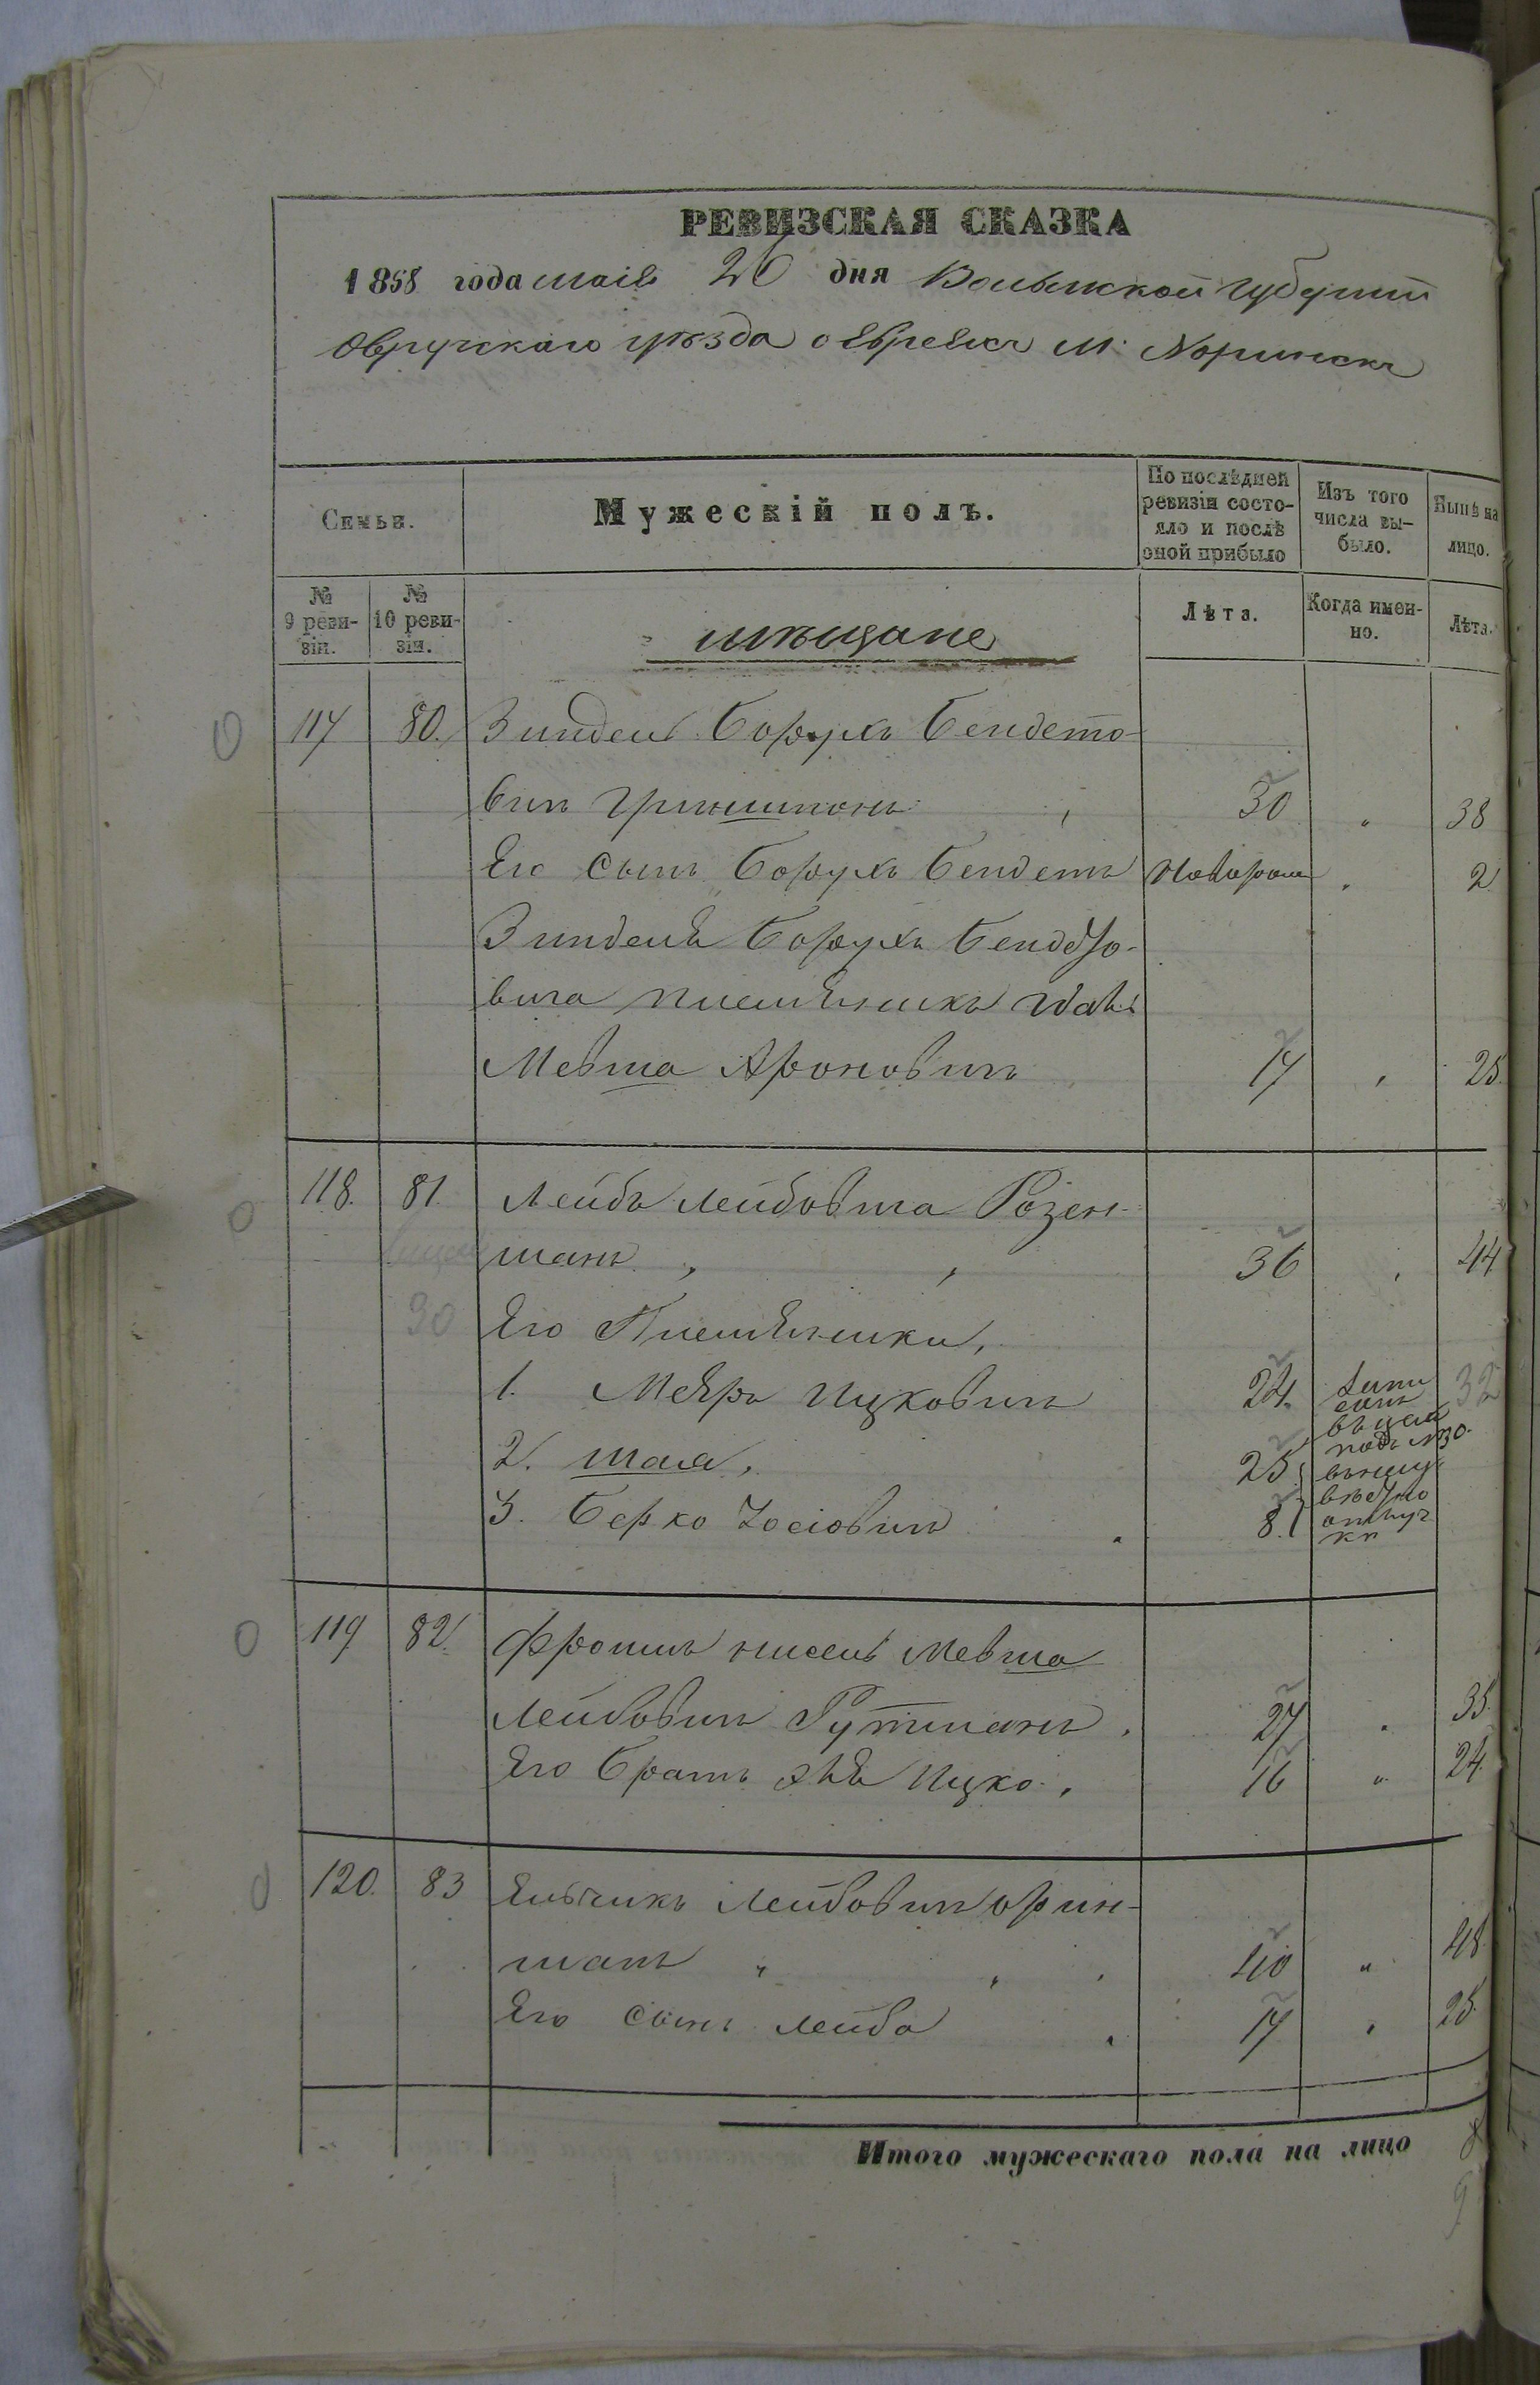 РЕВИЗСКАЯ СКАЗКА
1858 года маія 26 дня Волынской губерніи
Овручскаго уѣзда о Евреяхъ М. Норинскъ
Семьи.
Мужескій полъ.
По послѣдней ревизіи состояло и послѣ оной прибыло
Изъ того числа выбыло.
Нынѣ на лицо.
№ 9 ревизіи.
№ 10 ревизіи.
мѣщане
Лѣта.
Когда именно.
Лѣта.
117 80. Зиндель Борухъ Бендето-
вичъ Гриншпонъ 30 " 38
Его Сынъ Борухъ Бендетъ Новорож " 2
Зинделя Борухъ Бендето-
вича племянникъ
Мевша Ароновичъ 17 " 25.
118. 81. Лейба Лейбовича Розен-
манъ 36 " 44
30 Его Племянники,
1. Меяръ Ицковичъ 24. 32
въ цехъ
подъ №30.
2. Шая, 25
3. Берко Іосіовичъ 8.
119 82. Фроимъ Нисель Мевша
Лейбовичъ Гутманъ. 27 " 35.
Его Братъ Ицко. 16 " 24.
120. 83 Ельчикъ Лейбовичъ Орин-
манъ " 40 " 48.
Его Сынъ Лейба 17 " 25.
Итого мужескаго пола на лицо 8
9